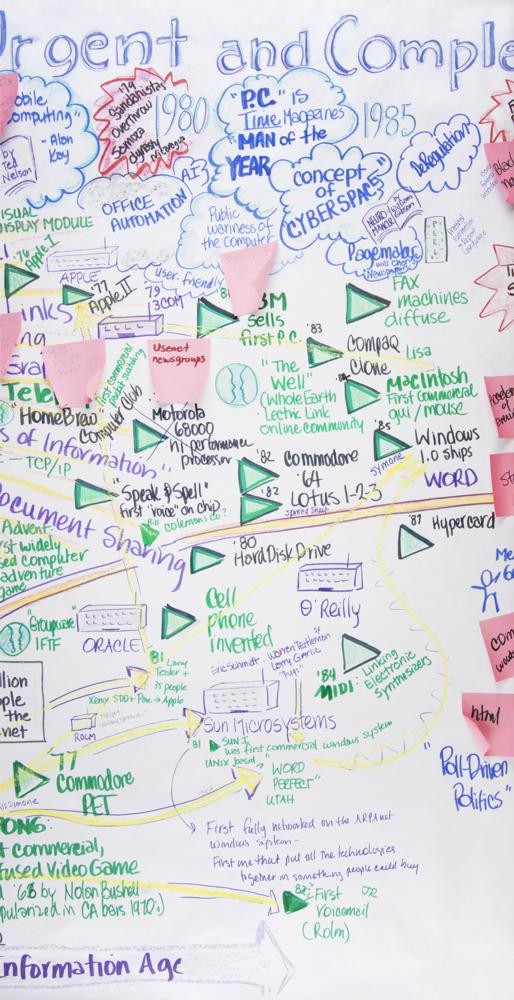 Urgent and Comple
obile
omputing"
- Alan
Kay
by
Ted
Nelson
'79
Sandanistas
overthrow
Somoza
1980
"P.C." is
Time Magazines
MAN of the
YEAR
1985
DeRegulation
AI
OFFICE
AUTOMATION
concept
of
"CYBERSPACE"
NEURO
MANCER
by William
Gibson
Public
wariness of
the Computer
Pagemaker
will change
Newspapers
ISUAL
DISPLAY MODULE
'76
Apple I
APPLE
'77
Apple II
'79
3COM
user-friendly
BM
Sells
first P.C.
FAX
machines
diffuse
inks
'83
Compaq
Clone
Lisa
Usenet
newsgroups
first commercial
"The
Well"
(Whole Earth
Lectric Link
online community)
Macintosh
First Commercial
gui / mouse
Tele
HomeBrew
Computer Club
Motorola
68000
hi performance
processor
'85
Windows
1.0 ships
s of Information"
TCP/IP
'82
Commodore
'64
Symone
WORD
"Speak & Spell"
First "voice" on chip
'82
Lotus 1-2-3
Spread Sheet
ocument Sharing
Coleman's Co?
'87
Hypercard
Advent:
st widely
sed computer
adventure
game
'80
Hard Disk Drive
"Groupware"
IFTF
ORACLE
Cell
phone
invented
O'Reilly
81
Larry
Tesler +
35 people
Xerox SDD + Parc → Apple
Eric Schmidt
Warren Teitlemon
Larry Garlic
'84
MIDI: Linking
Electronic
Synthesizers
llion
ople
the
net
ROLM
Sun Microsystems
81
SUN I
was first commercial windows system
UNIX based
'77
Commodore
PET
"WORD
PERFECT"
UTAH
html
"Poll-Driven
Politics"
ONG:
t commercial,
fused Video Game
'68 by Nolan Bushell
pularized in CA bars 1970.)
First fully networked on the ARPAnet
windows system -
First one that put all the technologies
together in something people could buy
82?
First
Voicemail
(Rolm)
Information Age